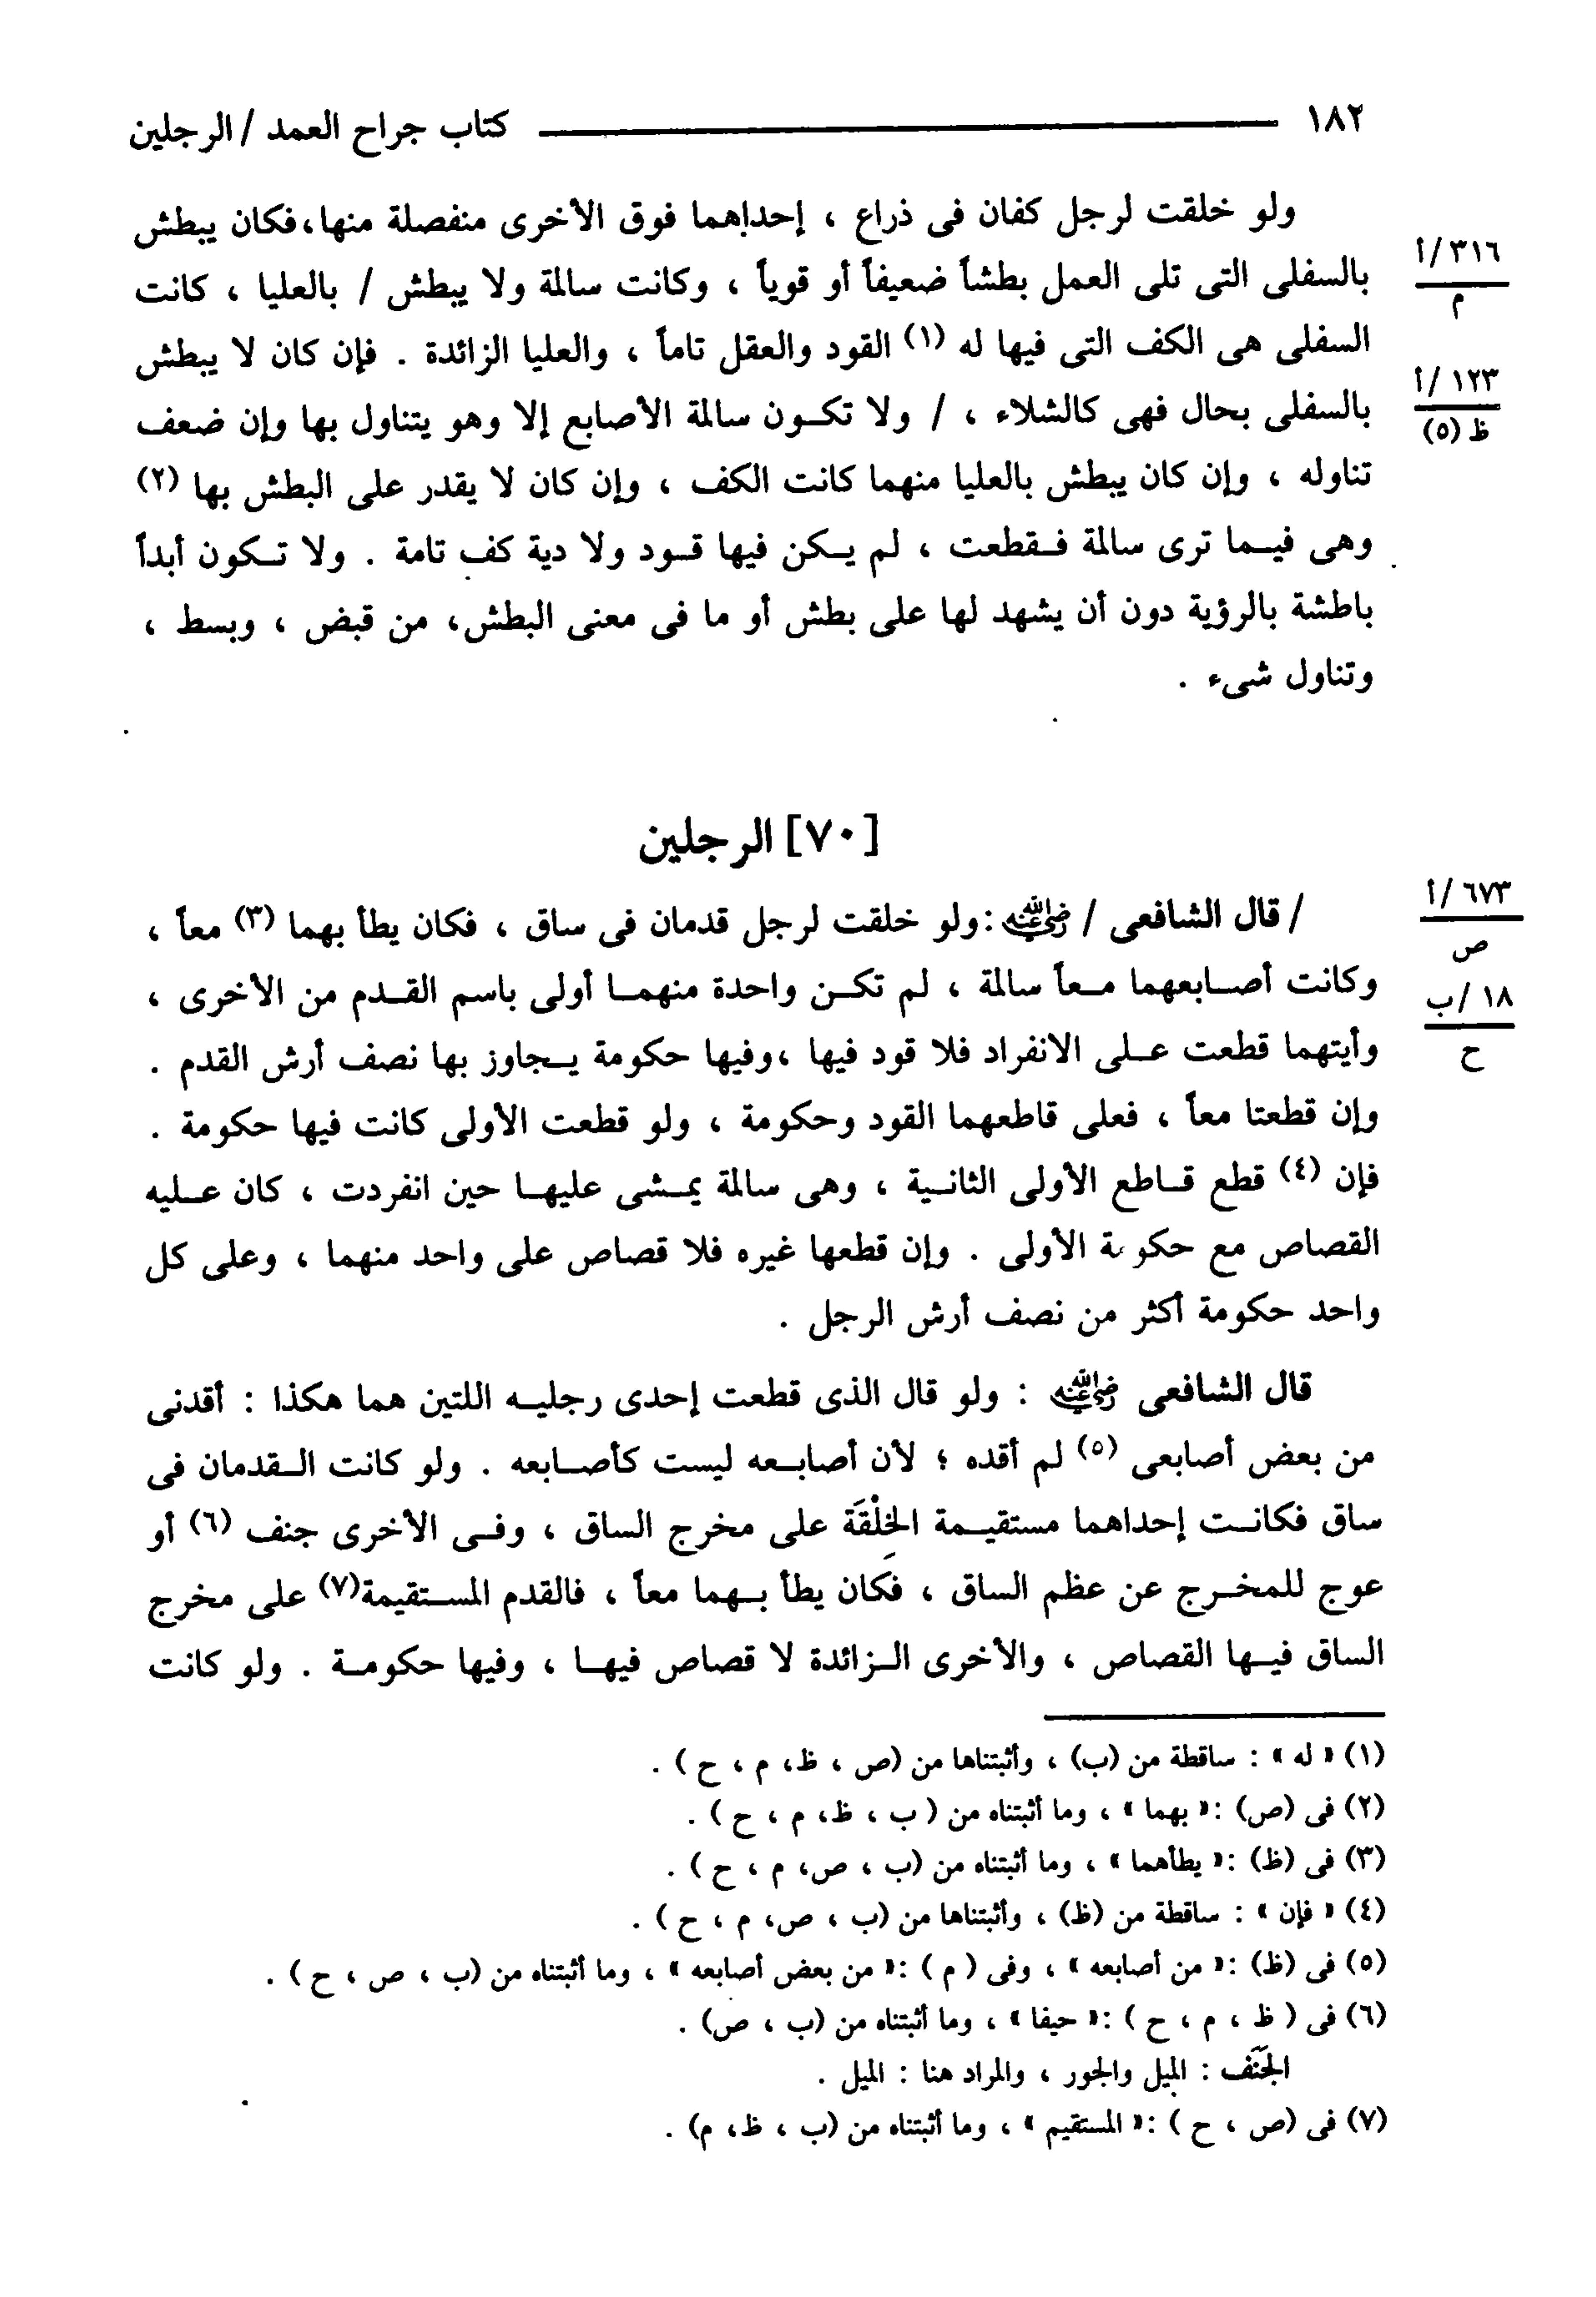 ١٨٢ ــــــ كتاب جراح العمد / الرجلين
ولو خلقت لرجل كفان فى ذراع ، إحداهما فوق الأخرى منفصلة منها،فكان يبطش
٣١٦/أ
م
بالسفلى التى تلى العمل بطشاً ضعيفاً أو قوياً ، وكانت سالمة ولا يبطش / بالعليا ، كانت
السفلى هى الكف التى فيها له (١) القود والعقل تاماً ، والعليا الزائدة . فإن كان لا يبطش
١٢٣/أ
ظ (٥)
بالسفلى بحال فهى كالشلاء ، / ولا تكون سالمة الأصابع إلا وهو يتناول بها وإن ضعف
تناوله ، وإن كان يبطش بالعليا منهما كانت الكف ، وإن كان لا يقدر على البطش بها (٢)
وهى فيما ترى سالمة فقطعت ، لم يكن فيها قود ولا دية كف تامة . ولا تكون أبداً
باطشة بالرؤية دون أن يشهد لها على بطش أو ما فى معنى البطش، من قبض ، وبسط ،
وتناول شىء .
[٧٠] الرجلين
٦٧٣/أ
ص
/ قال الشافعى / رضي الله عنه :ولو خلقت لرجل قدمان فى ساق ، فكان يطأ بهما (٣) معاً ،
١٨/ب
ح
وكانت أصابعهما معاً سالمة ، لم تكن واحدة منهما أولى باسم القدم من الأخرى ،
وأيتهما قطعت على الانفراد فلا قود فيها ،وفيها حكومة يجاوز بها نصف أرش القدم .
وإن قطعتا معاً ، فعلى قاطعهما القود وحكومة ، ولو قطعت الأولى كانت فيها حكومة .
فإن (٤) قطع قاطع الأولى الثانية ، وهى سالمة يمشى عليها حين انفردت ، كان عليه
القصاص مع حكومة الأولى . وإن قطعها غيره فلا قصاص على واحد منهما ، وعلى كل
واحد حكومة أكثر من نصف أرش الرجل .
قال الشافعى رضي الله عنه : ولو قال الذى قطعت إحدى رجليه اللتين هما هكذا : أقدنى
من بعض أصابعى (٥) لم أقده ؛ لأن أصابعه ليست كأصابعه . ولو كانت القدمان فى
ساق فكانت إحداهما مستقيمة الخِلْقَة على مخرج الساق ، وفى الأخرى جنف (٦) أو
عوج للمخرج عن عظم الساق ، فكان يطأ بهما معاً ، فالقدم المستقيمة(٧) على مخرج
الساق فيها القصاص ، والأخرى الزائدة لا قصاص فيها ، وفيها حكومة . ولو كانت
(١) « له » : ساقطة من (ب) ، وأثبتناها من (ص ، ظ، م ، ح ) .
(٢) فى (ص) :« بهما » ، وما أثبتناه من ( ب ، ظ، م ، ح ) .
(٣) فى (ظ) :« يطأهما » ، وما أثبتناه من (ب ، ص، م ، ح ) .
(٤) « فإن » : ساقطة من (ظ) ، وأثبتناها من (ب ، ص، م ، ح ) .
(٥) فى (ظ) :« من أصابعه » ، وفى ( م ) :« من بعض أصابعه » ، وما أثبتناه من (ب ، ص ، ح ) .
(٦) فى ( ظ ، م ، ح ) :« حيفا » ، وما أثبتناه من (ب ، ص) .
الجَنَف : الميل والجور ، والمراد هنا : الميل .
(٧) فى (ص ، ح ) :« المستقيم » ، وما أثبتناه من (ب ، ظ، م) .